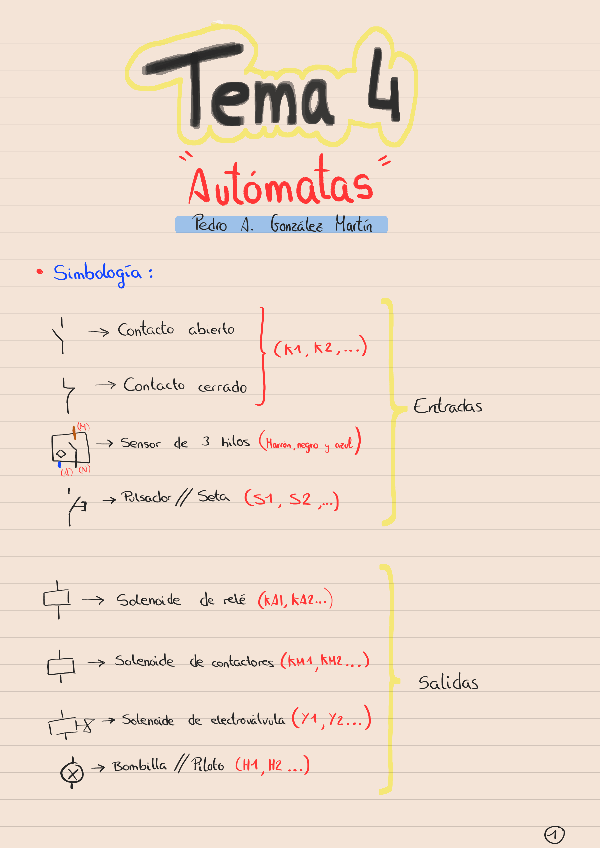 Tema 4
"Autómatas"
Pedro A. González Martín
• Simbología:
→ Contacto abierto
(K1, K2, ...)
→ Contacto cerrado
Entradas
(M)
→ Sensor de 3 hilos (Marron, negro y azul)
(A) (N)
→ Pulsador // Seta (S1, S2, ...)
→ Solenoide de relé (KA1, KA2...)
→ Solenoide de contactores (KM1, KM2...)
Salidas
→ Solenoide de electroválvula (Y1, Y2...)
→ Bombilla // Piloto (H1, H2 ...)
1